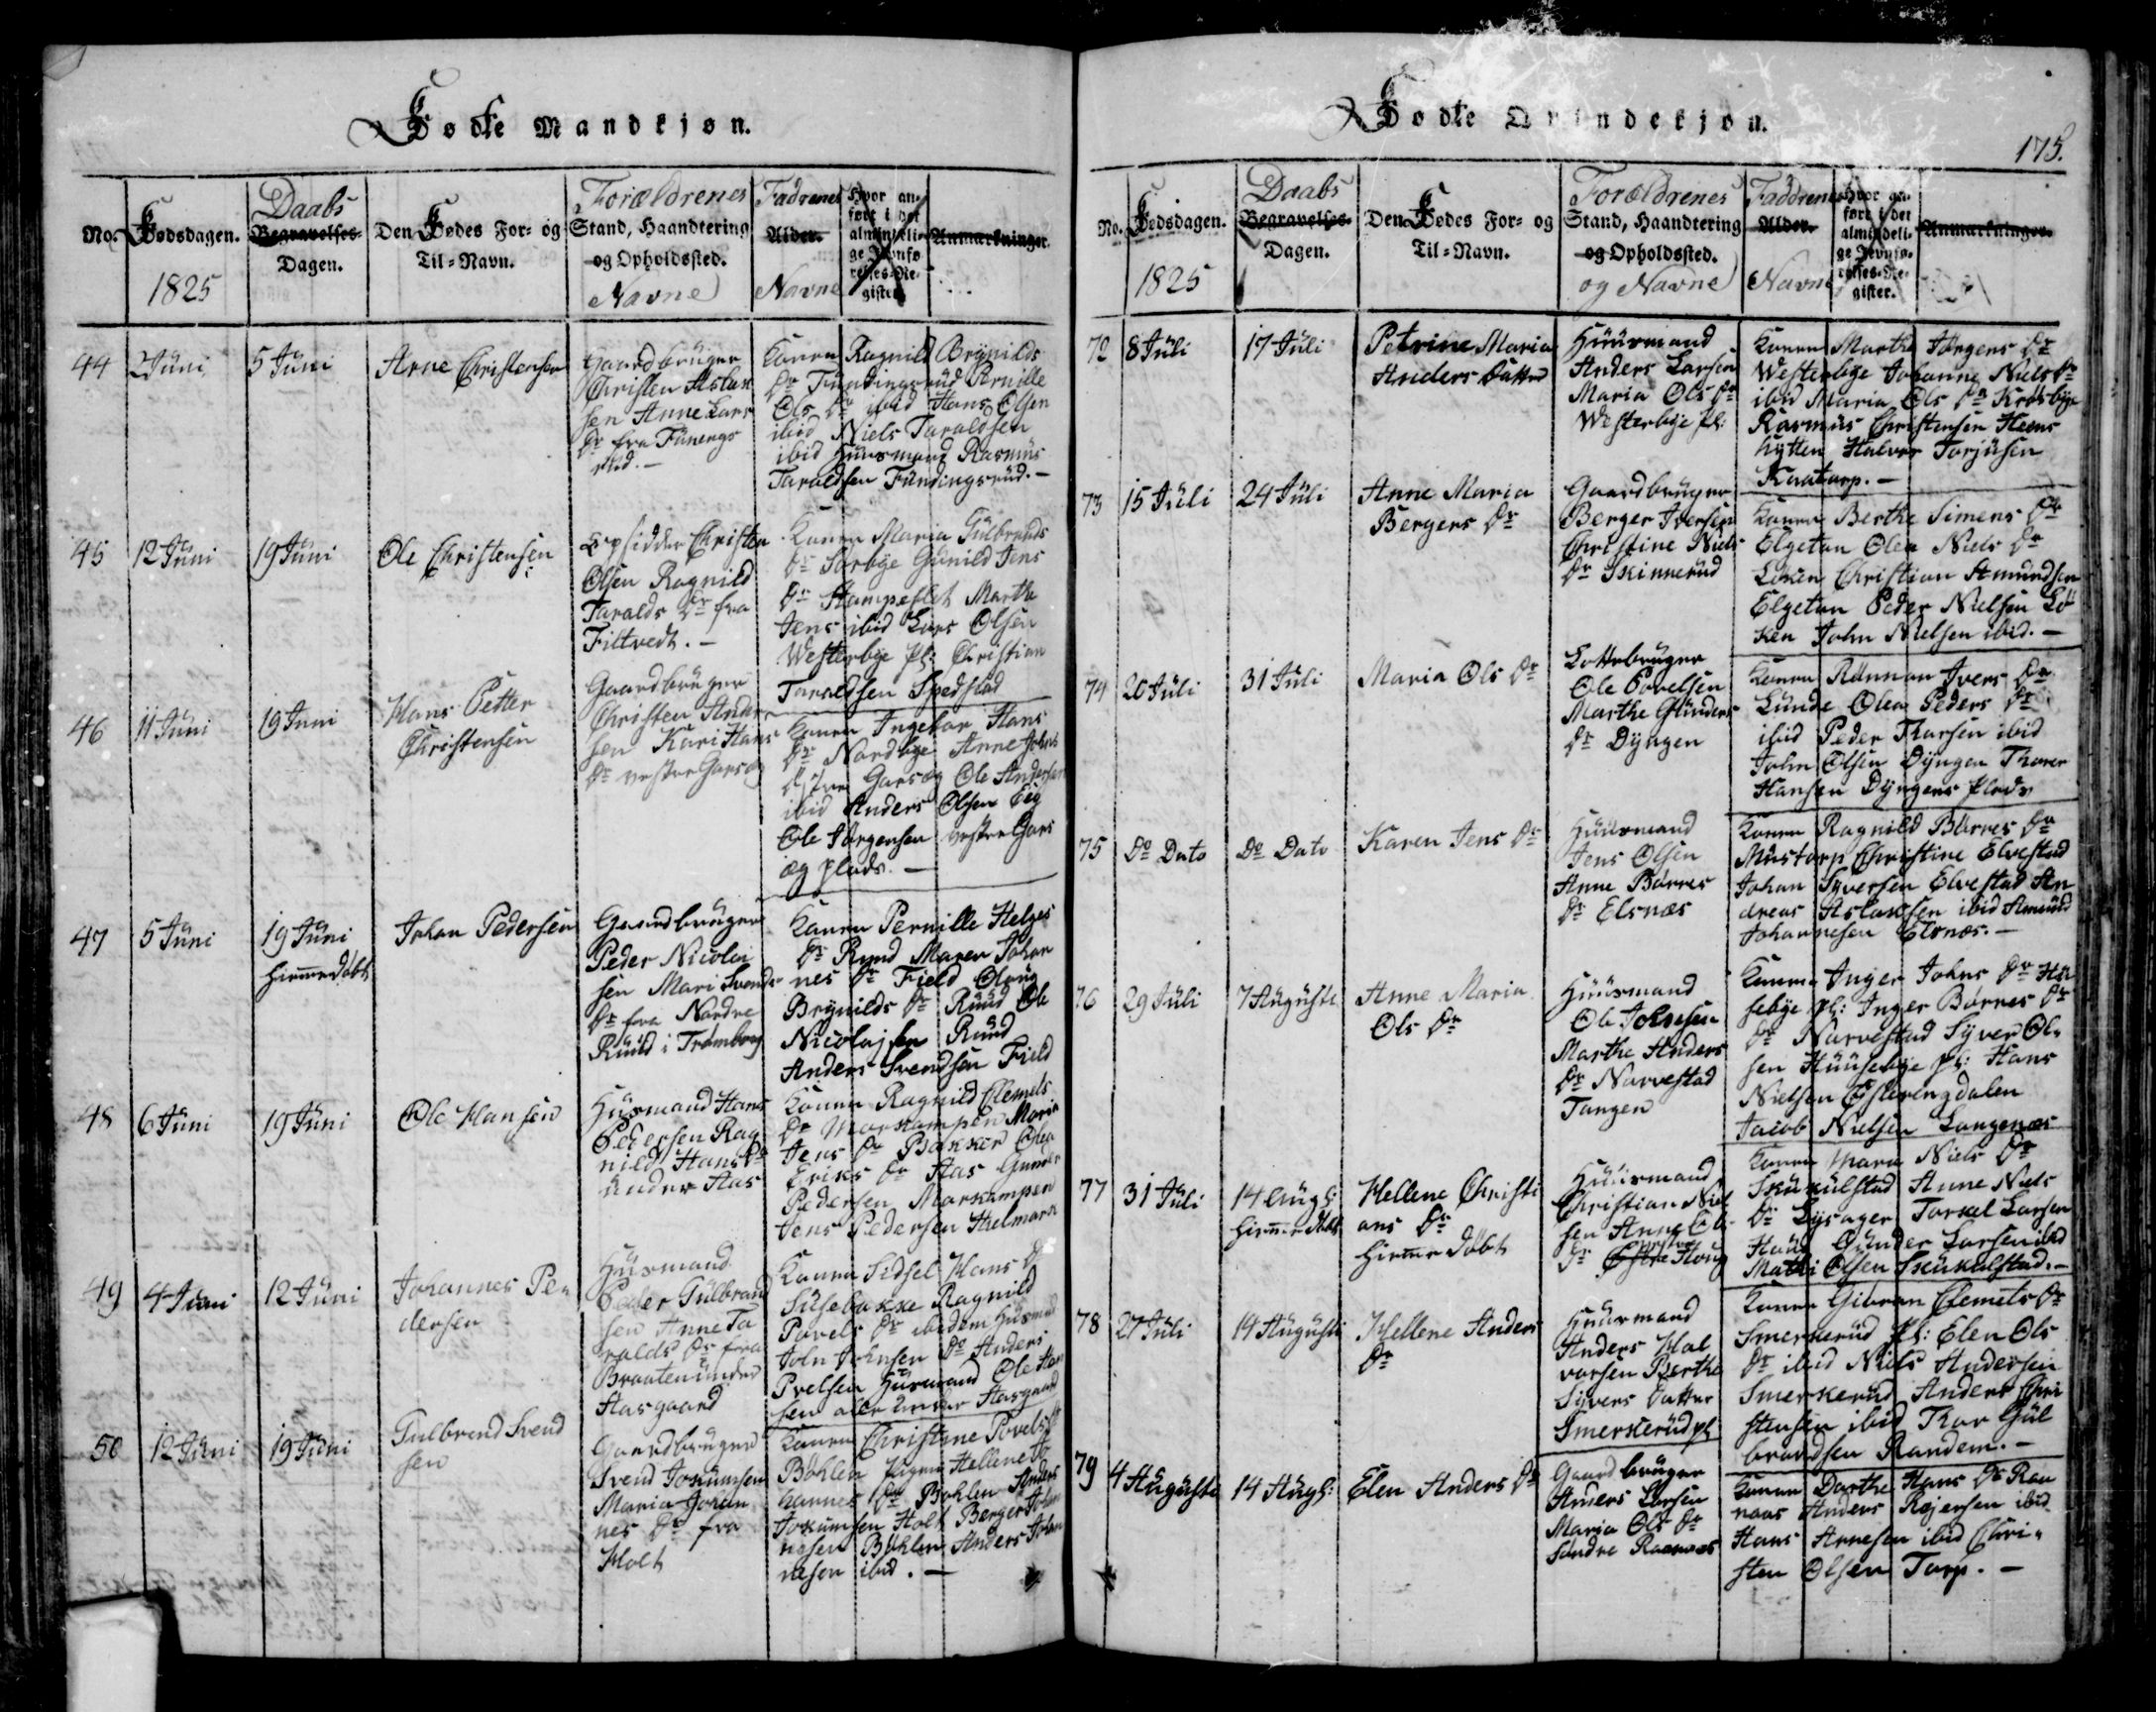 Fødte Mandkjøn.
No.
Fødsdagen.
1825
Daabs
Begravelses-
Dagen.
Den Fødes For- og
Til-Navn.
Forældrenes
Stand, Haandtering
og Opholdssted.
Navne
Fadrenes
Alder.
Navne
Hvor an-
ført i det
almindeli-
ge Jevnfø-
relses-Re-
gister.
Anmærkninger.
44
2 Juni
5 Juni
Arne Christensen
Gaardbruger
Christen Aslak
sen Anne Lars
Dr fra Fünengs
rud.-
Konen Ragnild Brynilds
Dr Fündingsrud Pernille
Ols Dr ibid Hans Olsen
ibid Niels Taraldsen
ibid Huusmand Rasmus
Taraldsen Fündingsrud.-
45
12 Juni
19 Juni
Ole Christensen
Opsidder Christen
Olsen Ragnild
Taralds Dr fra
Filtvedt.-
Konen Maria Gulbrands
Dr Sorbye Gunild Jens
Dr Stampeflet Marthe
Jens ibid Lars Olsen
Westerbye Pl: Christian
Taraldsen Spedstad
46
11 Juni
19 Juni
Hans Petter
Christensen
Gaardbruger
Christen Ander
sen Kari Hans
Dr vestre Garsæg
Konen Ingebor Hans
Dr Nordbye Anne Johns
Garsæg Ole Andersen
ibid Anders Olsen Eig
Ole Jørgensen vestre Gars
æg plads.-
47
5 Juni
19 Juni
hiemedøbt
Johan Pedersen
Gaardbruger
Peder Nicolai
sen Mari Svends
Dr fra Nordre
Ruud i Trømborg
Konen Pernille Helges
Dr Ruud Maren Johan
nes Dr Field Oloug
Brynilds Dr Ruud Ole
Nicolajsen Ruud
Anders Svendsen Field
48
6 Juni
19 Juni
Ole Hansen
Husmand Hans
Pedersen Rag
nild Hans Dr
under Aas
Konen Ragnild Clemets
Dr Morskampen Maria
Jens Dr Bakker Olea
Eriks Dr Aas Gunder
Pedersen Morskampen
Jens Pedersen Hielmark
49
4 Juni
12 Juni
Johannes Pe-
dersen
Husmand
Peder Gulbrand
sen Anne Ta
ralds Dr fra
Braaten under
Aasgaard
Konen Sidsel Hans Dr
Susebakke Ragnild
Povels Dr ibidem Husmand
John Johnsen Do Anders
Pvelsen Husmand Ole Han
sen alle under Aasgaard
50
12 Juni
19 Juni
Gulbrend Svend
sen
Gaardbruger
Svend Jokumsen
Maria Johan
nes Dr fra
Holt
Konen Christine Povels Dr
Bøhlen Pigen Hellene Jo
hannes Dr Bøhlen Anders
Jokumsen Holt Berger Johan
nesen Bøhlen Anders Johan
nesen ibid.-
Fødte Qvindekjøn.
175.
No.
Fødsdagen.
1825
Daabs
Begravelses-
Dagen.
Den Fødes For- og
Til-Navn.
Forældrenes
Stand, Haandtering
og Opholdssted.
og Navne
Faddrenes
Alder.
Navne
Hvor an-
ført i det
almindeli-
ge Jevnfø-
relses-Re-
gister.
Anmærkninger.
72
8 Juli
17 Juli
Petrine Maria
Anders Datter
Huusmand
Anders Larsen
Maria Ols Dr
Westerbye pl:
Konen Marthe Jørgens Dr
Westerbye Johanne Niels Dr
ibid Maria Ols Dr Krosbye
Rasmus Christensen Hems
hytten Halvor Torjusen
Kaatorp.-
73
15 Juli
24 Juli
Anne Maria
Bergers Dr
Gaardbruger
Berger Iversen
Christine Niels
Dr Skinnerud
Konen Berthe Simens Dr
Elgetun Olea Niels Dr
Løken Christian Amundsen
Elgetun Peder Nielsen Lø
ken John Nielsen ibid.-
74
20 Juli
31 Juli
Maria Ols Dr
Lottebruger
Ole Povelsen
Marthe Gunders
Dr Dyngen
Konen Rønnau Ivers Dr
Lunde Olea Peders Dr
ibid Peder Thorsen ibid
John Olsen Dyngen Thorer
Hansen Dyngens plads
75
Do Dato
Do Dato
Karen Jens Dr
Huusmand
Jens Olsen
Anne Børres
Dr Elsnæs
Konen Ragnild Børres Dr
Mustorp Christine Elvestad
Johan Syversen Elvestad An
dreas Aslaksen ibid Amund
Johannesen Elsnæs.-
76
29 Juli
7 Auguste
Anne Maria
Ols Dr
Huusmand
Ole Johnsen
Marthe Anders
Dr Narvestad
Tangen
Konen Inger Johns Dr Huu
sebye pl: Inger Børres Dr
Dr Narvestad Syver Ol-
sen Huusebye pl: Hans
Nielsen Esterengdalen
Jacob Nielsen Langenæs
77
31 Juli
14 Augs:
hiemedøbt
Hellene Christi
ans Dr
hieme døbt
Huusmand
Christian Niel
sen Anne Ols
Dr Østre vestre Houg
Konen Maria Niels Dr
Skukulstad Anne Niels
Dr Lysager Torkel Larsen
Houg Gunder Larsen ibid
Mathi Olsen Skukulstad.-
78
27 Juli
14 Auguste
Hellene Anders
Dr
Huusmand
Anders Hal
vorsen Berthe
Syvers Datter
Smerkerud pl
Konen Giøran Clemets Dr
Smerkerud Pl: Elen Ols
Dr ibid Niels Andersen
Smerkerud Anders Chri
stensen ibid Thor Gul
brandsen Randem.-
79
4 Auguste
14 Augs:
Elen Anders Dr
Gaardbruger
Anders Larsen
Maria Ols Dr
Søndre Raanaas
Konen Dorthe Hans Dr Raa
naas Anders Rejersen ibid
Hans Arnesen ibid Chri-
sten Olsen Torp.-